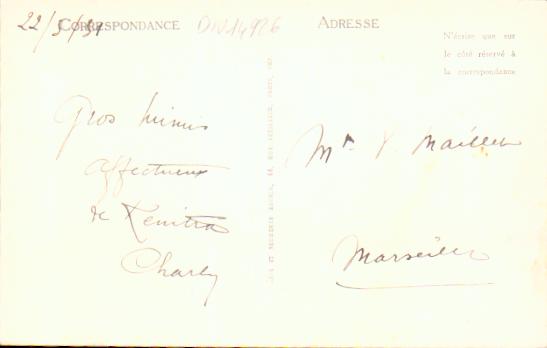 22/5/31
CORRESPONDANCE
DIV14926
ADRESSE
N'écrire que sur
le côté réservé à
la correspondance
Gros mimis
affectueux
de Kenitra
Charly
Mr Y. Maillet
Marseille